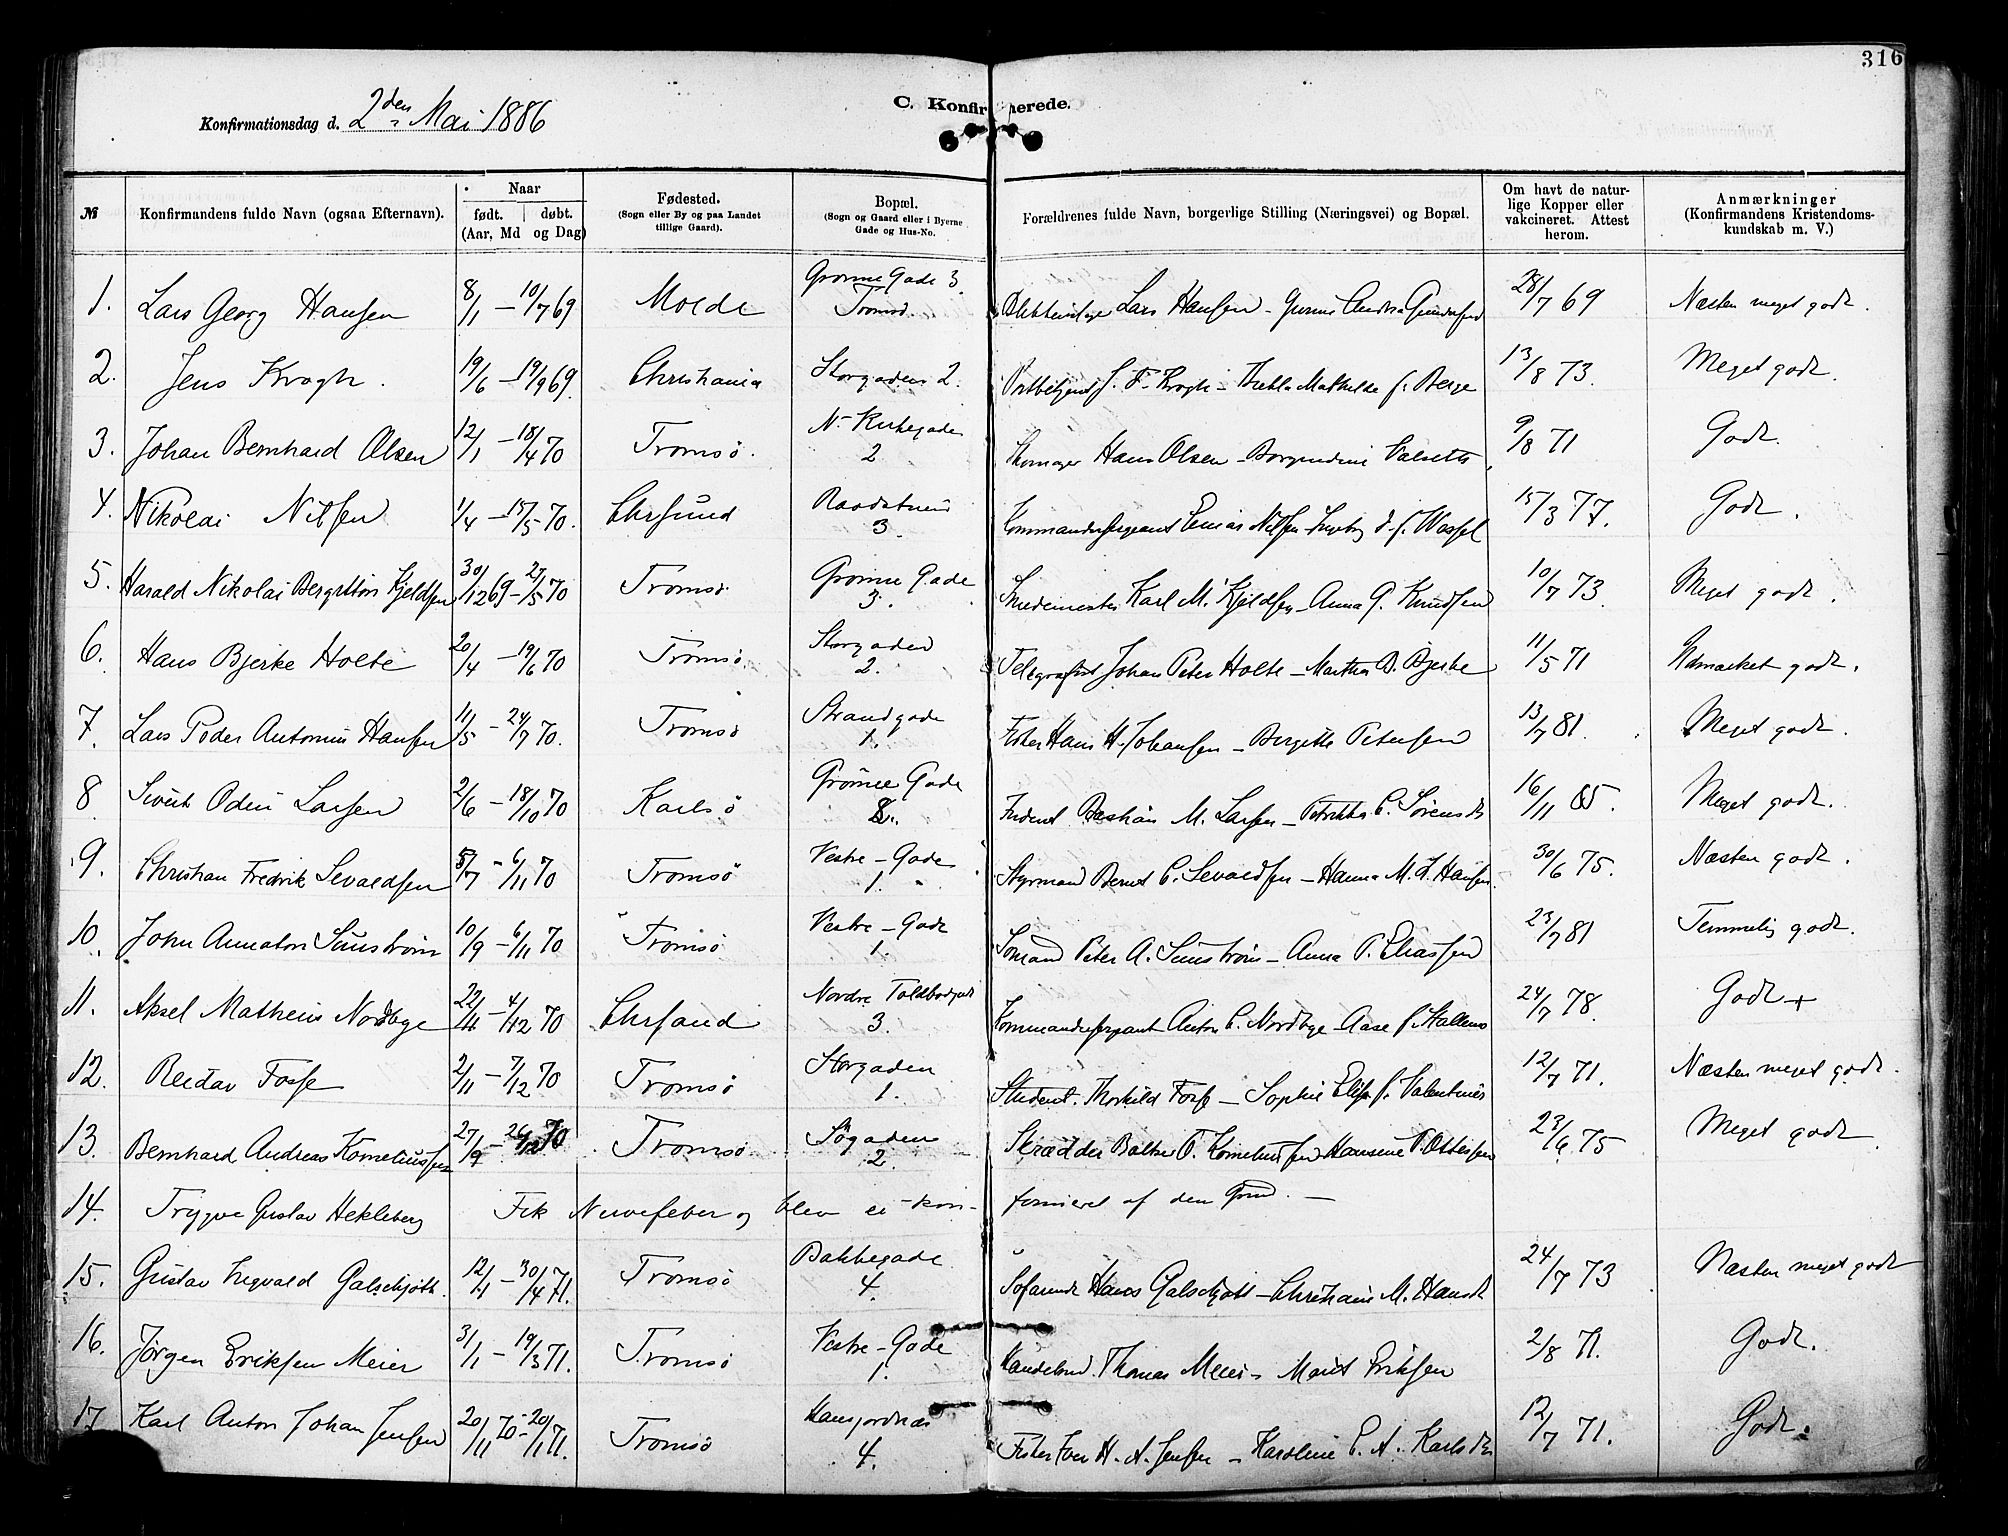 316
C. Konfirmerede.
Konfirmationsdag d. 2den Mai 1886
№ Konfirmandens fulde Navn (ogsaa Efternavn). Naar født. døbt. (Aar, Md og Dag) Fødested. (Sogn eller By og paa Landet tillige Gaard). Bopæl. (Sogn og Gaard eller i Byerne Gade og Hus-No. Forældrenes fulde Navn, borgerlige Stilling (Næringsvei) og Bopæl. Om havt de naturlige Kopper eller vakcineret. Attest herom. Anmærkninger (Konfirmandens Kristendomskundskab m. V.)
1. Lars Georg Hansen 8/1 – 10/7 69 Molde Grønne Gade 3. Tromsø. Lars Hansen – 28/7 69 Næsten meget godt.
2. Jens Krogh. 19/6 – 19/9 69. Christiania Storgaden 2. F. Krogh – Thekla Mathilde f. Berge 13/8 73. Meget godt.
3. Johan Bernhard Olsen 12/1 – 18/4 70 Tromsø. N. Kirkegade 2 Skomager Hans Olsen – 9/8 71 Godt.
4. Nikolai Nilsen 1/4 – 15/5 70. Chrsund 3. Kommandersergeant Nilsen – 15/3 77. Godt.
5. Harald Nikolai Kjeldsen 30/12 69 – 27/5 70 Tromsø. Grønne Gade 3. Smedemester Karl M. Kjeldsen – Anna G. Knudsen 10/7 73. Meget godt.
6. Hans Bjerke Holte 20/4 – 19/6 70 Tromsø. Storgaden 2. Telegrafist Johan Peter Holte – Martha B. Bjerke 11/5 71 Udmærket godt.
7. Lars Peder Antonius Hansen 11/5 – 24/7 70. Tromsø Strandgade 1. Fisker Hans H. Johansen – Bergitte Petersen 13/7 81. Meget godt.
8 Sivert Odin Larsen 2/6 – 18/10 70 Karlsø Grønne Gade M. Larsen – C. Sørensdt 16/11 85. Meget godt.
9. Christian Fredrik Sevaldsen 5/7 – 6/11 70 Tromsø Vestre – Gade 1. Styrmand Bernt C. Sevaldsen – Hanna M. L. Hansen. 30/6 75. Næsten godt.
10. John Annaton Sunstrøm 10/9 – 6/11 70 Tromsø Vestre – Gade 1. Sømand Peter A. Sunstrøm – Anna P. Eliassen 23/7 81 Temmelig godt.
11. Aksel Matheus Nordbye 22/11 – 4/12 70 Chrsand Nordre Toldbodgade 3. Kommandersergeant Anton C. Nordbye – Aase f. Stallemo 24/7 78. Godt +
12. Reidar Fosse 2/11 – 7/12 70 Tromsø Storgaden 1. Student. Thorkild Fosse – Sophie Elise f. Valentiner 12/7 71. Næsten meget godt.
13. Bernhard Andreas Korneliussen 27/9 – 26/12 70 Tromsø Søgaden 2. Skrædder P. Korneliussen Hansine P. Ottesen 23/6 75 Meget godt
14. Trygve Gustav Hekleberg Fik Nervefeber og blev ei – konfirmeret af den Grund. –
15. Gustav Ingvald Galschjøtt. 12/1 – 30/4 71. Tromsø Bakkegade 4. Søfarende Hans Galschjøtt – Christiane M. Hansdt 24/7 73 Næsten meget godt
16. Jørgen Eriksen Meier 31/1 – 19/3 71. Tromsø Vestre – Gade 1. Handelsmd. Thomas Meier – Marit Eriksen 2/8 71. Godt.
17 Karl Anton Johan Jensen 20/11 70 – 20/1 71. Tromsø Hansjordnæs 4. Fisker Iver H. A. Jensen – Karoline C. A. Karlsdtr 12/7 71. Godt.